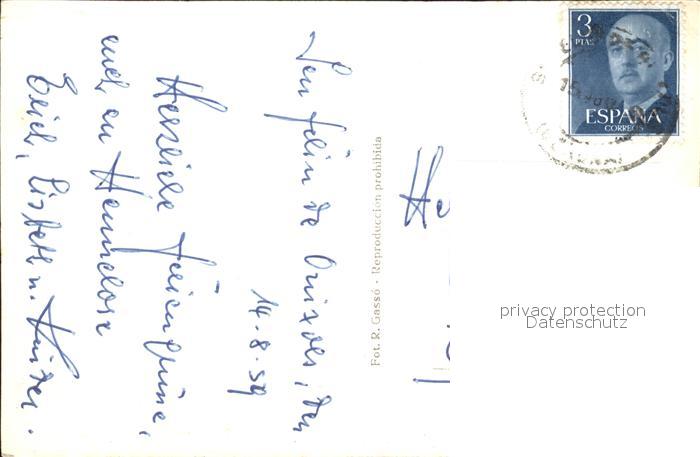 San Feliu de Guixols, den
14.8.59
Herzliche Feriengrüsse,
auch an Hannelore
Erich, Lisbeth u. Kinder.
Fot. R. Gassó - Reproduccion prohibida
He
3
PTAS
ESPAÑA
CORREOS
privacy protection
Datenschutz